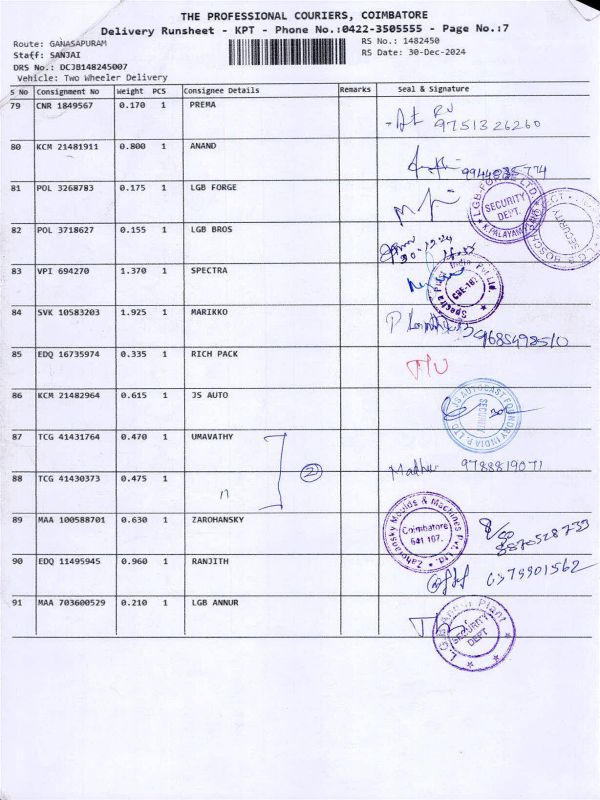 THE PROFESSIONAL COURIERS, COIMBATORE
Delivery Runsheet - KPT - Phone No.:0422-3505555 - Page No.:7
Route: GANASAPURAM
RS No.: 1482450
Staff: SANJAI
RS Date: 30-Dec-2024
DRS No.: DCJB148245007
Vehicle: Two Wheeler Delivery
S No Consignment No Weight PCS Consignee Details Remarks Seal & Signature
79 CNR 1849567 0.170 1 PREMA
9751326260
80 KCM 21481911 0.800 1 ANAND
81 POL 3268783 0.175 1 LGB FORGE
LGB-FORGE LTD SECURITY DEPT.
SECURITY
82 POL 3718627 0.155 1 LGB BROS
30-12-24
83 VPI 694270 1.370 1 SPECTRA
Spectra Plast India Pvt Ltd.
84 SVK 10583203 1.925 1 MARIKKO
85 EDQ 16735974 0.335 1 RICH PACK
86 KCM 21482964 0.615 1 JS AUTO
JS AUTOCAST FOUNDRY INDIA P. LTD. SECURITY
87 TCG 41431764 0.470 1 UMAVATHY
2
Madhu 9788819071
88 TCG 41430373 0.475 1
n
89 MAA 100588701 0.630 1 ZAROHANSKY
Zahoransky Moulds & Machines Pvt. Ltd. Coimbatore 641 107.
8870528733
90 EDQ 11495945 0.960 1 RANJITH
6379901562
91 MAA 703600529 0.210 1 LGB ANNUR
L.G.B Annur Plant SECURITY DEPT